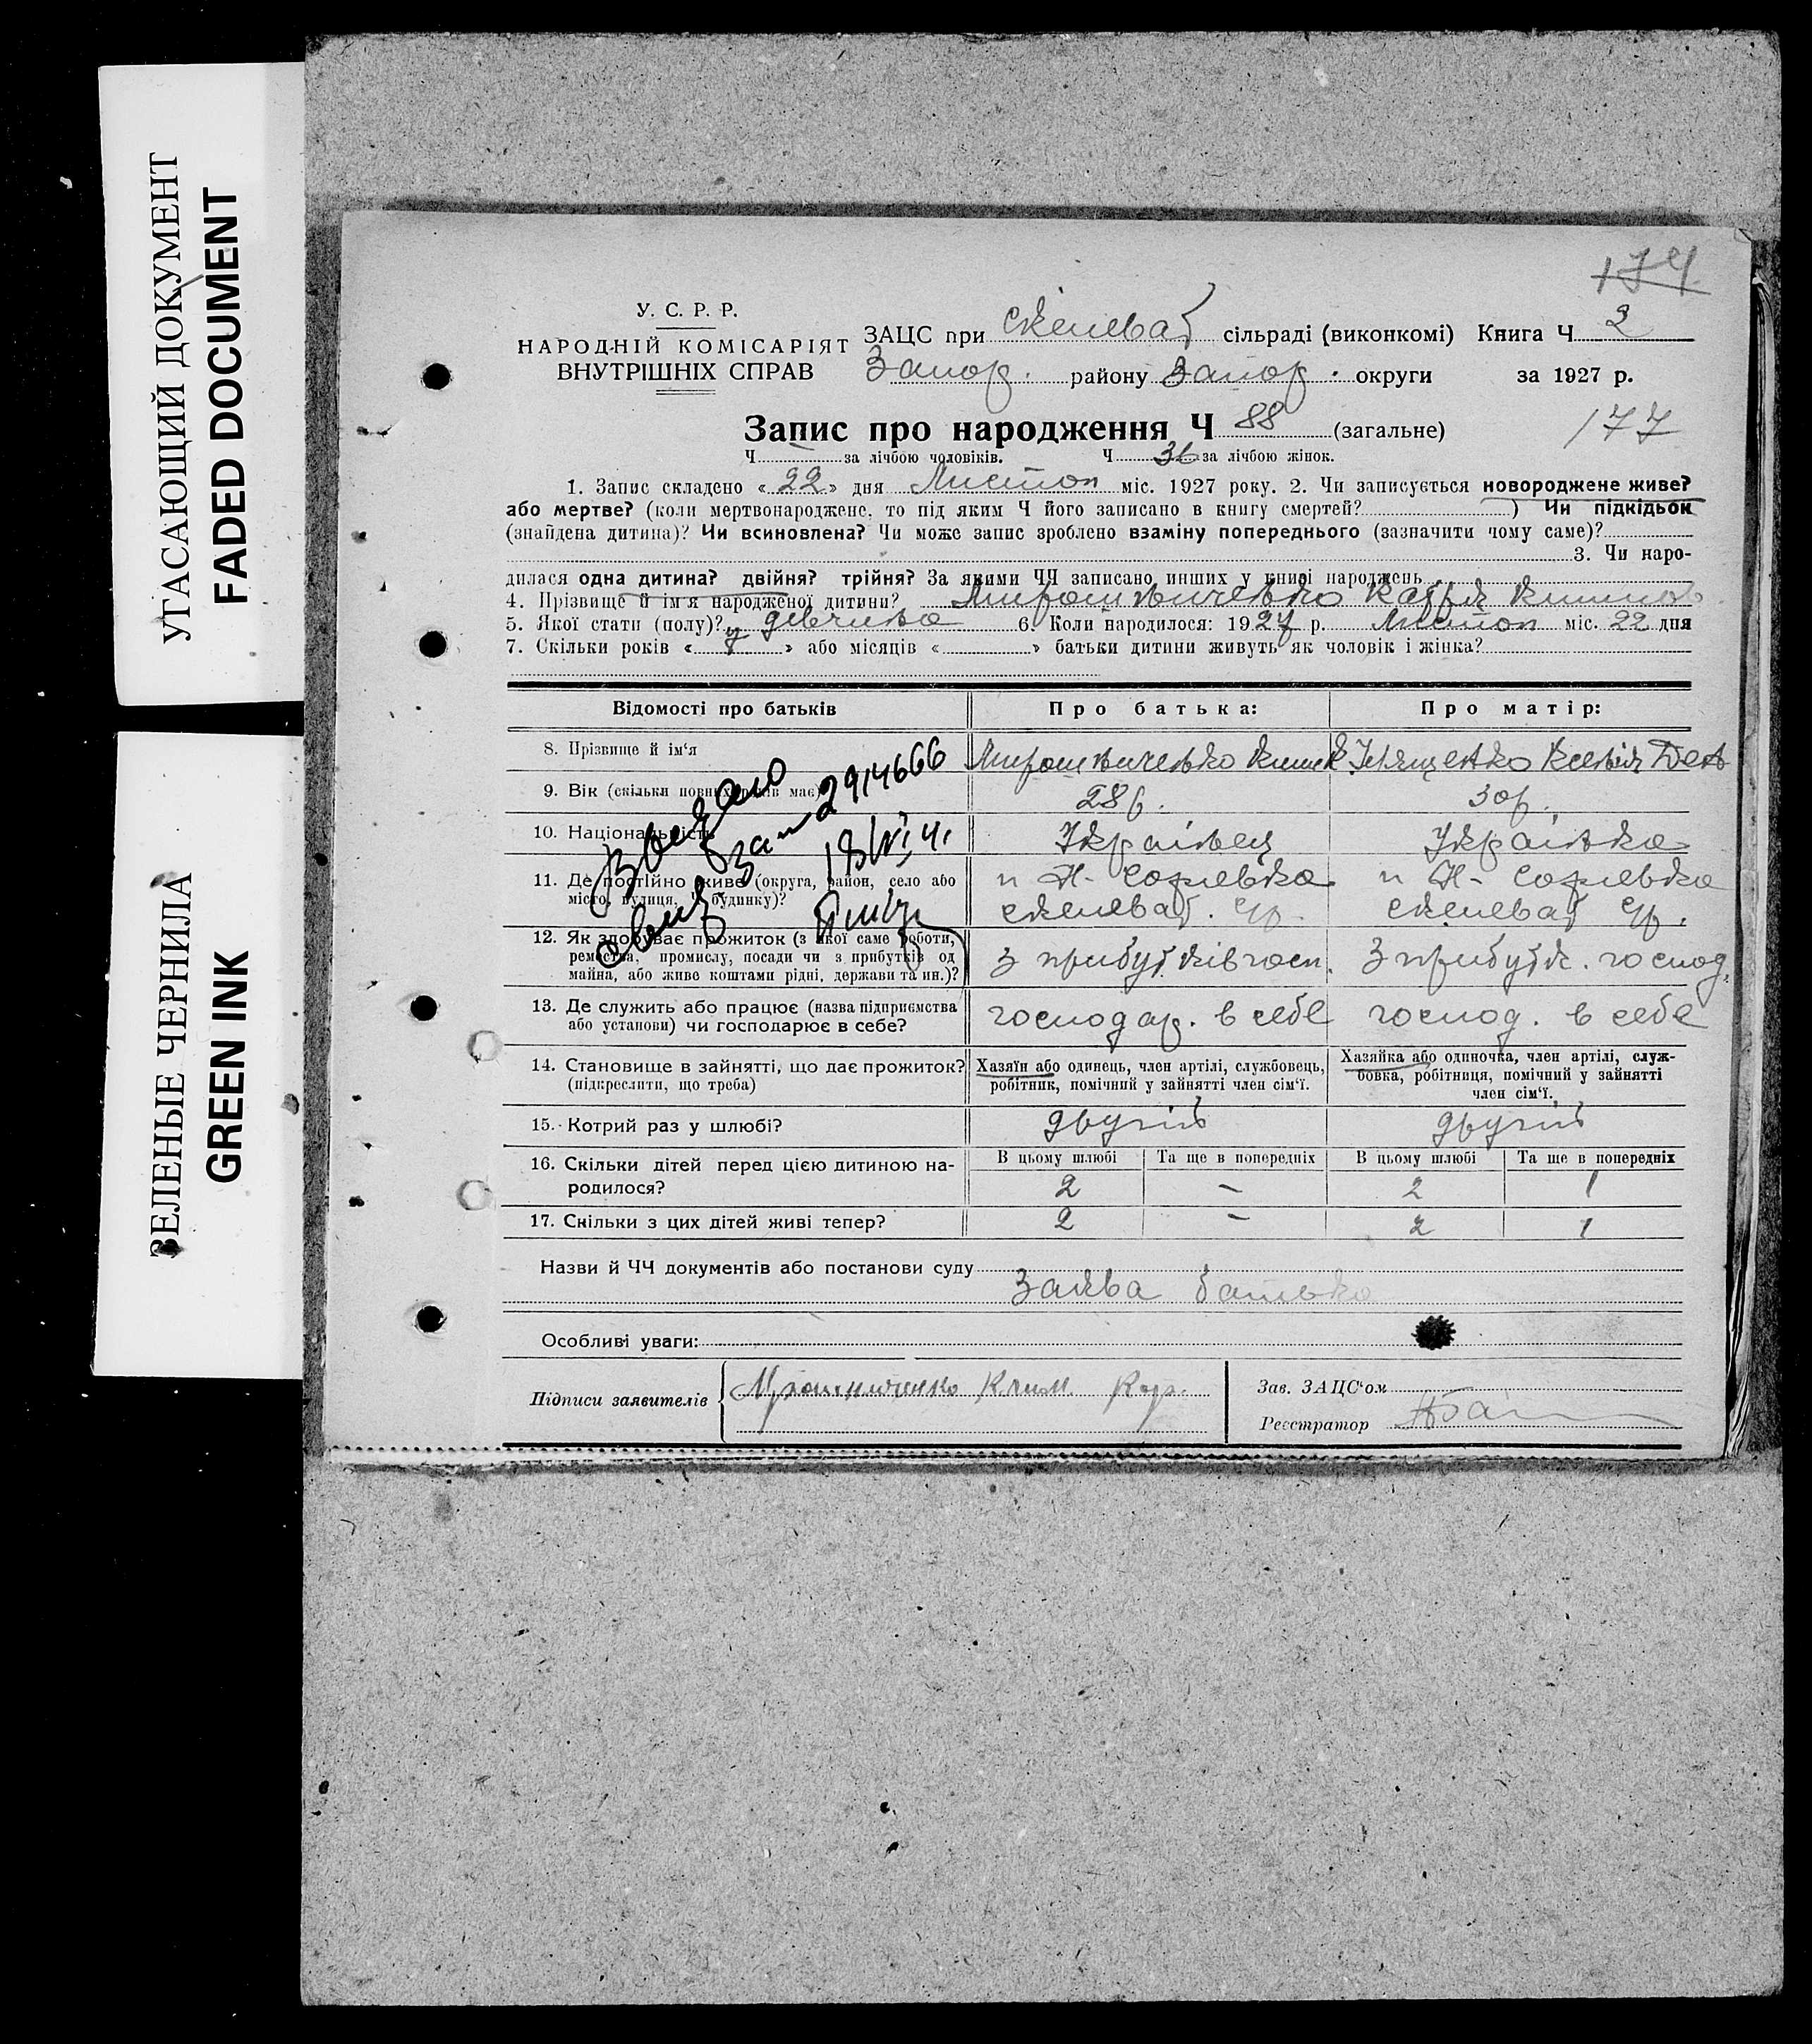 УГАСАЮЩИЙ ДОКУМЕНТ
FADED DOCUMENT
ЗЕЛЕНЫЕ ЧЕРНИЛА
GREEN INK
174
У. С. Р. Р.
НАРОДНІЙ КОМІСАРІЯТ
ВНУТРІШНІХ СПРАВ
ЗАЦС при Скелеват сільраді (виконкомі) Книга Ч 2
Запор. району Запор. округи за 1927 р.
Запис про народження Ч 88 (загальне)
177
Ч за лічбою чоловіків. Ч 36 за лічбою жінок.
1. Запис складено «22» дня Листоп міс. 1927 року. 2. Чи записується новороджене живе?
або мертве? (коли мертвонароджене, то під яким Ч його записано в книгу смертей? ) Чи підкідьок
(знайдена дитина)? Чи всиновлена? Чи може запис зроблено взаміну попереднього (зазначити чому саме)?
3. Чи наро-
дилася одна дитина? двійня? трійня? За якими ЧЧ записано инших у книзі народжень
4. Прізвище й ім'я народженої дитини? Мирошниченко Катря Климов
5. Якої стати (полу)? дівчина 6. Коли народилося: 1927 р. Листоп міс. 22 дня
7. Скільки років « » або місяців « » батьки дитини живуть як чоловік і жінка?
Відомості про батьків Про батька: Про матір:
8. Прізвище й ім'я Мирошниченко Клим
9. Вік (скільки повних років має) 28 р. 30 р.
10. Національність Українец Українка
11. Де постійно живе (округа, район, село або
місто, вулиця, будинку)?
п Н- Софіевка п Н- Софіевка
Скелеват. Скелеват
12. Як здобуває прожиток (з якої саме роботи,
ремества, промислу, посади чи з прибутків од
майна, або живе коштами рідні, держави та ин.)?
з прибутків госп. З прибутк. господ.
13. Де служить або працює (назва підприємства
або установи) чи господарює в себе?
господар. в себе господ. в себе
14. Становище в зайнятті, що дає прожиток?
(підкреслити, що треба)
Хазяїн або одинець, член артілі, службовець,
робітник, помічний у зайнятті член сім'ї.
Хазяйка або одиночка, член артілі, служ-
бовка, робітниця, помічний у зайнятті
член сім'ї.
15. Котрий раз у шлюбі? другий другий
16. Скільки дітей перед цією дитиною на-
родилося?
В цьому шлюбі Та ще в попередніх В цьому шлюбі Та ще в попередніх
2 - 2 1
17. Скільки з цих дітей живі тепер? 2 - 2 1
2914666
Назви й ЧЧ документів або постанови суду
Заява батька
Особливі уваги:
Підписи заявителів Клим Кор.
Зав. ЗАЦС'ом
Реєстратор